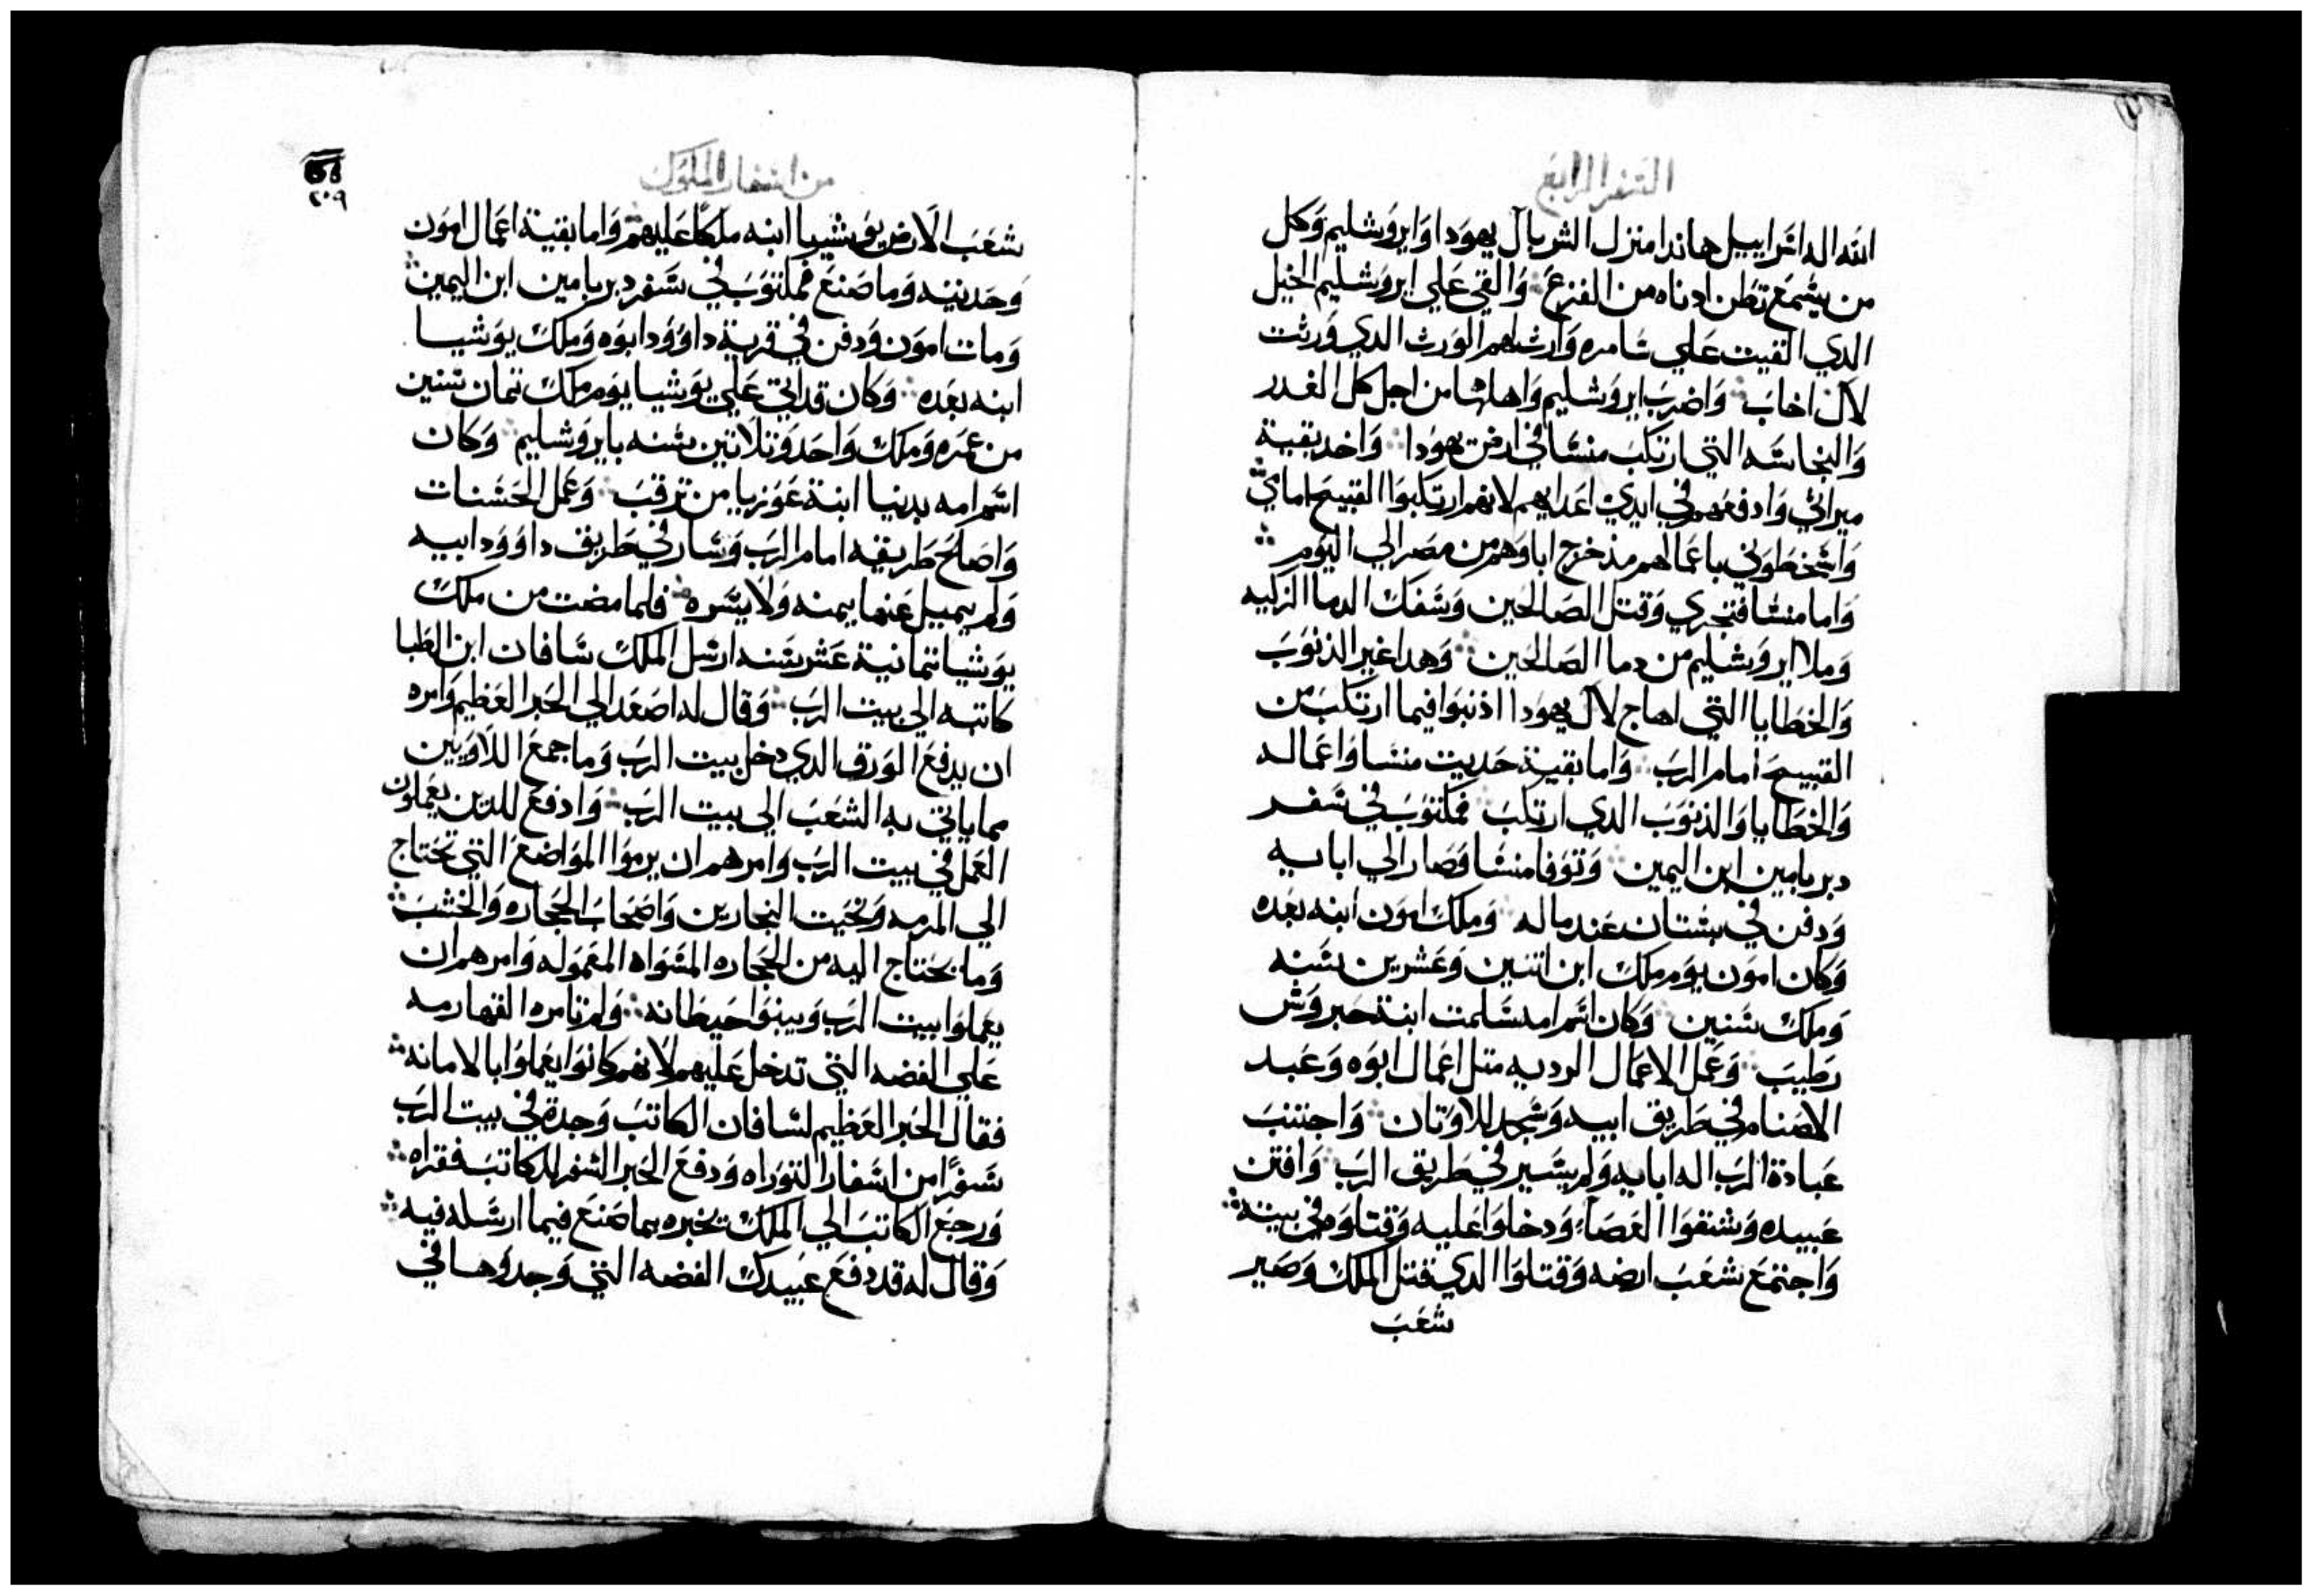 السفر الرابع
الله اله اسراييل هاندا منزل الشر بال يهودا وايروشليم وكل
من يسمع تطن ادناه من الفزع والقي علي ايروشليم الخيل
الدي القيت علي سامره وارشلهم الورث الدي ورثت
لال اخاب واضرب ايروشليم واهلها من اجل كل الغدر
والنجاسه التي ارتكب منسا في ارض يهودا واخد بقية
ميراثي وادفعهم في ايدي اعدايهم لانهم ارتكبوا القبيح امامي
واسخطوني باعمالهم مند خرج اباوهم من مصر الي اليوم
واما منسا فتجري وقتل الصالحين وسفك الدما الزكيه
وملا ايروشليم من دما الصالحين وهدا غير الذنوب
والخطايا التي اهاج لال يهودا اذنبوا فيما ارتكب من
القبيح امام الرب واما بقية حديت منسا واعماله
والخطايا والذنوب الدي ارتكب فمكتوب في سفر
دبريامين ابن اليمين وتوفا منسا وصار الي ابايه
ودفن في بستان عند ماله وملك امون ابنه بعده
وكان امون يوم ملك ابن اتنين وعشرين سنه
وملك سنين وكان اسم امه سلمت ابنة حبروش
رطيب وعمل الاعمال الرديه متل اعمال ابوه وعبد
الاصنام في طريق ابيه وسجد للاوتان واجتنب
عبادة الرب اله ابايه ولم يسير في طريق الرب وافتن
عبيده وشنقوا العصا ودخلوا عليه وقتلوه في بيته
واجتمع شعب ارضه وقتلوا الدي قتل الملك وصير
شعب
من اسفار الملوك
٢٠٩
شعب الارض يوشيا ابنه ملكا عليهم واما بقية اعمال امون
وحديته وما صنع فمكتوب في سفر دبريامين ابن اليمين
ومات امون ودفن في قرية داوود ابوه وملك يوشيا
ابنه بعده وكان قد اتي علي يوشيا يوم ملك تمان سنين
من عمره وملك واحد وتلاتين سنه بايروشليم وكان
اسم امه يدنيا ابنة عوزيا من ترقب وعمل الحسنات
واصلح طريقه امام الرب وسار في طريق داوود ابيه
ولم يميل عنها يمنه ولا يسره فلما مضت من ملك
يوشيا تمانية عشر سنه ارسل الملك سافان ابن الطبا
كاتبه الي بيت الرب وقال له اصعد الي الحبر العظيم وامره
ان يدفع الورق الدي دخل بيت الرب وما جمع اللاويين
مما ياتي به الشعب الي بيت الرب وادفع للدين يعملون
العمل في بيت الرب وامرهم ان يرموا المواضع التي تحتاج
الي المرمه ونحيت النجارين واصحاب الحجاره والخشب
وما يحتاج اليه من الحجاره المسواه المعموله وامرهم ان
يعملوا بيت الرب ويبنوا حيطانه ولم تامره القهارمه
علي الفضه التي تدخل عليهم لانهم كانوا يعملوا بالامانه
فقال الحبر العظيم لسافان الكاتب وجدة في بيت الرب
سفرا من اسفار التوراه ودفع الحبر السفر للكاتب فقراه
ورجع الكاتب الي الملك يخبره بما صنع فيما ارسله فيه
وقال له قد دفع عبيدك الفضه التي وجدوها في